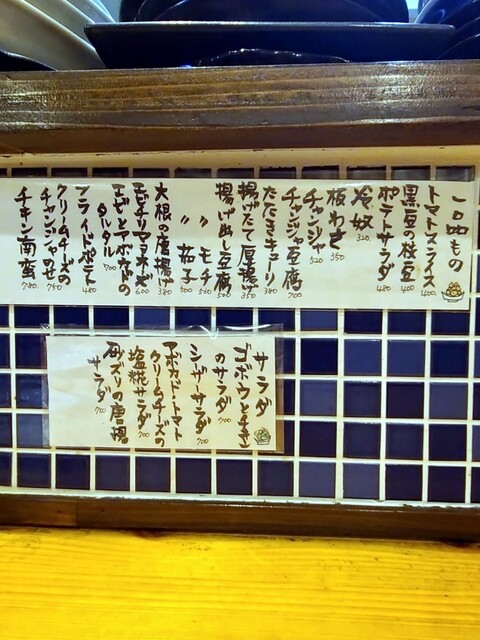 一品もの
トマトスライス 400
黒豆の枝豆 400
ポテトサラダ 480
冷奴 320
板わさ 350
チャンジャ 520
チャンジャ豆腐 700
たたきキューリ 380
揚げたて厚揚げ 350
揚げ出し豆腐 500
〃 モチ 540
〃 茄子 500
大根の唐揚げ 380
エビチリマヨネーズ 600
エビとアボカドの
タルタル 700
フライドポテト 480
クリームチーズの
チャンジャのせ 740
チキン南蛮 780
サラダ
ゴボウとチキン
のサラダ 700
シーザーサラダ 700
アボカド・トマト
クリームチーズの
塩糀サラダ 700
砂ズリの唐揚
サラダ 700